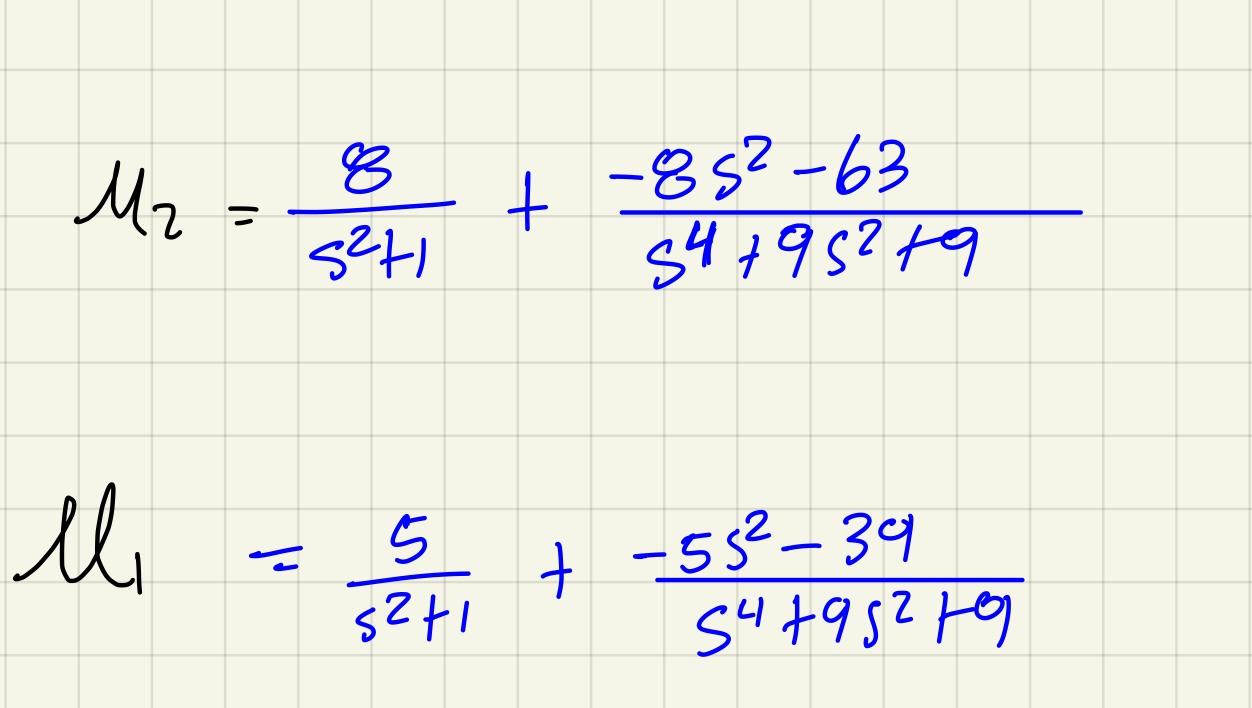 𝓜₂ = 8/(s²+1) + (-8s²-63)/(s⁴+9s²+9)
𝓜₁ = 5/(s²+1) + (-5s²-39)/(s⁴+9s²+9)